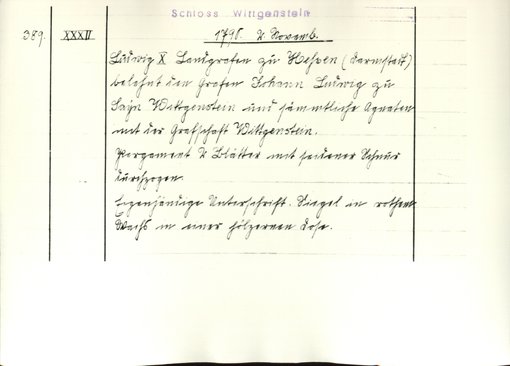 Schloss Wittgenstein
389. XXXII 1790. 2 Novemb.
Ludwig X Landgrafen zu Hessen (Darmstadt)
belehnt den Grafen Johann Ludwig zu
Sayn Wittgenstein und sämmtliche Agnaten
mit der Grafschaft Wittgenstein.
Pergament 2 Blätter mit seidener Schnur
durchzogen.
Eigenhändige Unterschrift. Siegel in rothem
Wachs in einer hölzernen Dose.